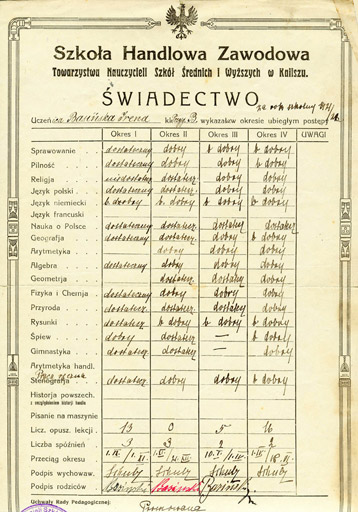 Szkoła Handlowa Zawodowa
Towarzystwa Nauczycieli Szkół Średnich i Wyższych w Kaliszu.
ŚWIADECTWO za rok szkolny
Uczeń Irena kl. B. wykazał w okresie ubiegłym postępy
Okres I Okres II Okres III Okres IV UWAGI
Sprawowanie dostateczny dobry b dobry b dobry
Pilność dostateczny dobry dobry b dobry
Religja niedostatecz dostatecz. dobry dobry
Język polski dostateczny dostatecz. dobry dobry
Język niemiecki b dobry b. dobry b dobry b dobry
Język francuski
Nauka o Polsce dostateczny dostatecz dostatecz dostatecz
Geografja dostateczny dostatecz. dobry dobry
Arytmetyka dobry dobry dobry
Algebra dostateczny dobry dobry dobry
Geometrja dostatecz dostatecz dobry
Fizyka i Chemja dostateczny dobry dobry dobry
Przyroda dostateczny dostatecz dostatecz dobry
Rysunki dostatecz b dobry b dobry b dobry
Śpiew dobry dobry — b dobry
Gimnastyka dostatecz dostatecz — dobry
Arytmetyka handl.
Stenografja dostatecz dostatecz dobry b dobry
Historja powszech.
z uwzględnieniem historji handlu
Pisanie na maszynie
Licz. opusz. lekcji 13 0 5 16
Liczba spóźnień 3 3 2 2
Przeciąg okresu
Podpis wychowaw. Schulz Schulz Schulz Schulz
Podpis rodziców
Uchwały Rady Pedagogicznej:
Promowana